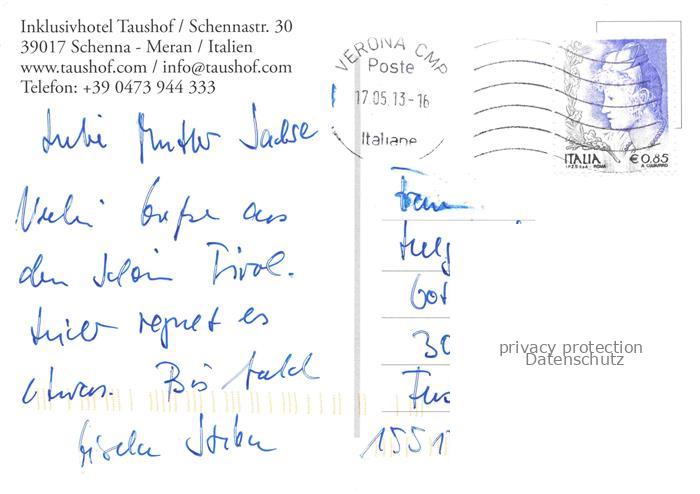 Inklusivhotel Taushof / Schennastr. 30
39017 Schenna - Meran / Italien
www.taushof.com / info@taushof.com
Telefon: +39 0473 944 333
VERONA CMP
Poste
17.05.13-16
Italiane
ITALIA
€ 0,85
I.P.Z.S. S.p.A. - ROMA
Liebe Mutter Sachse
Viele Grüße aus
dem schönen Tirol.
Hier regnet es
etwas. Bis bald
Gisela
Frau
Got
30
1551
privacy protection
Datenschutz